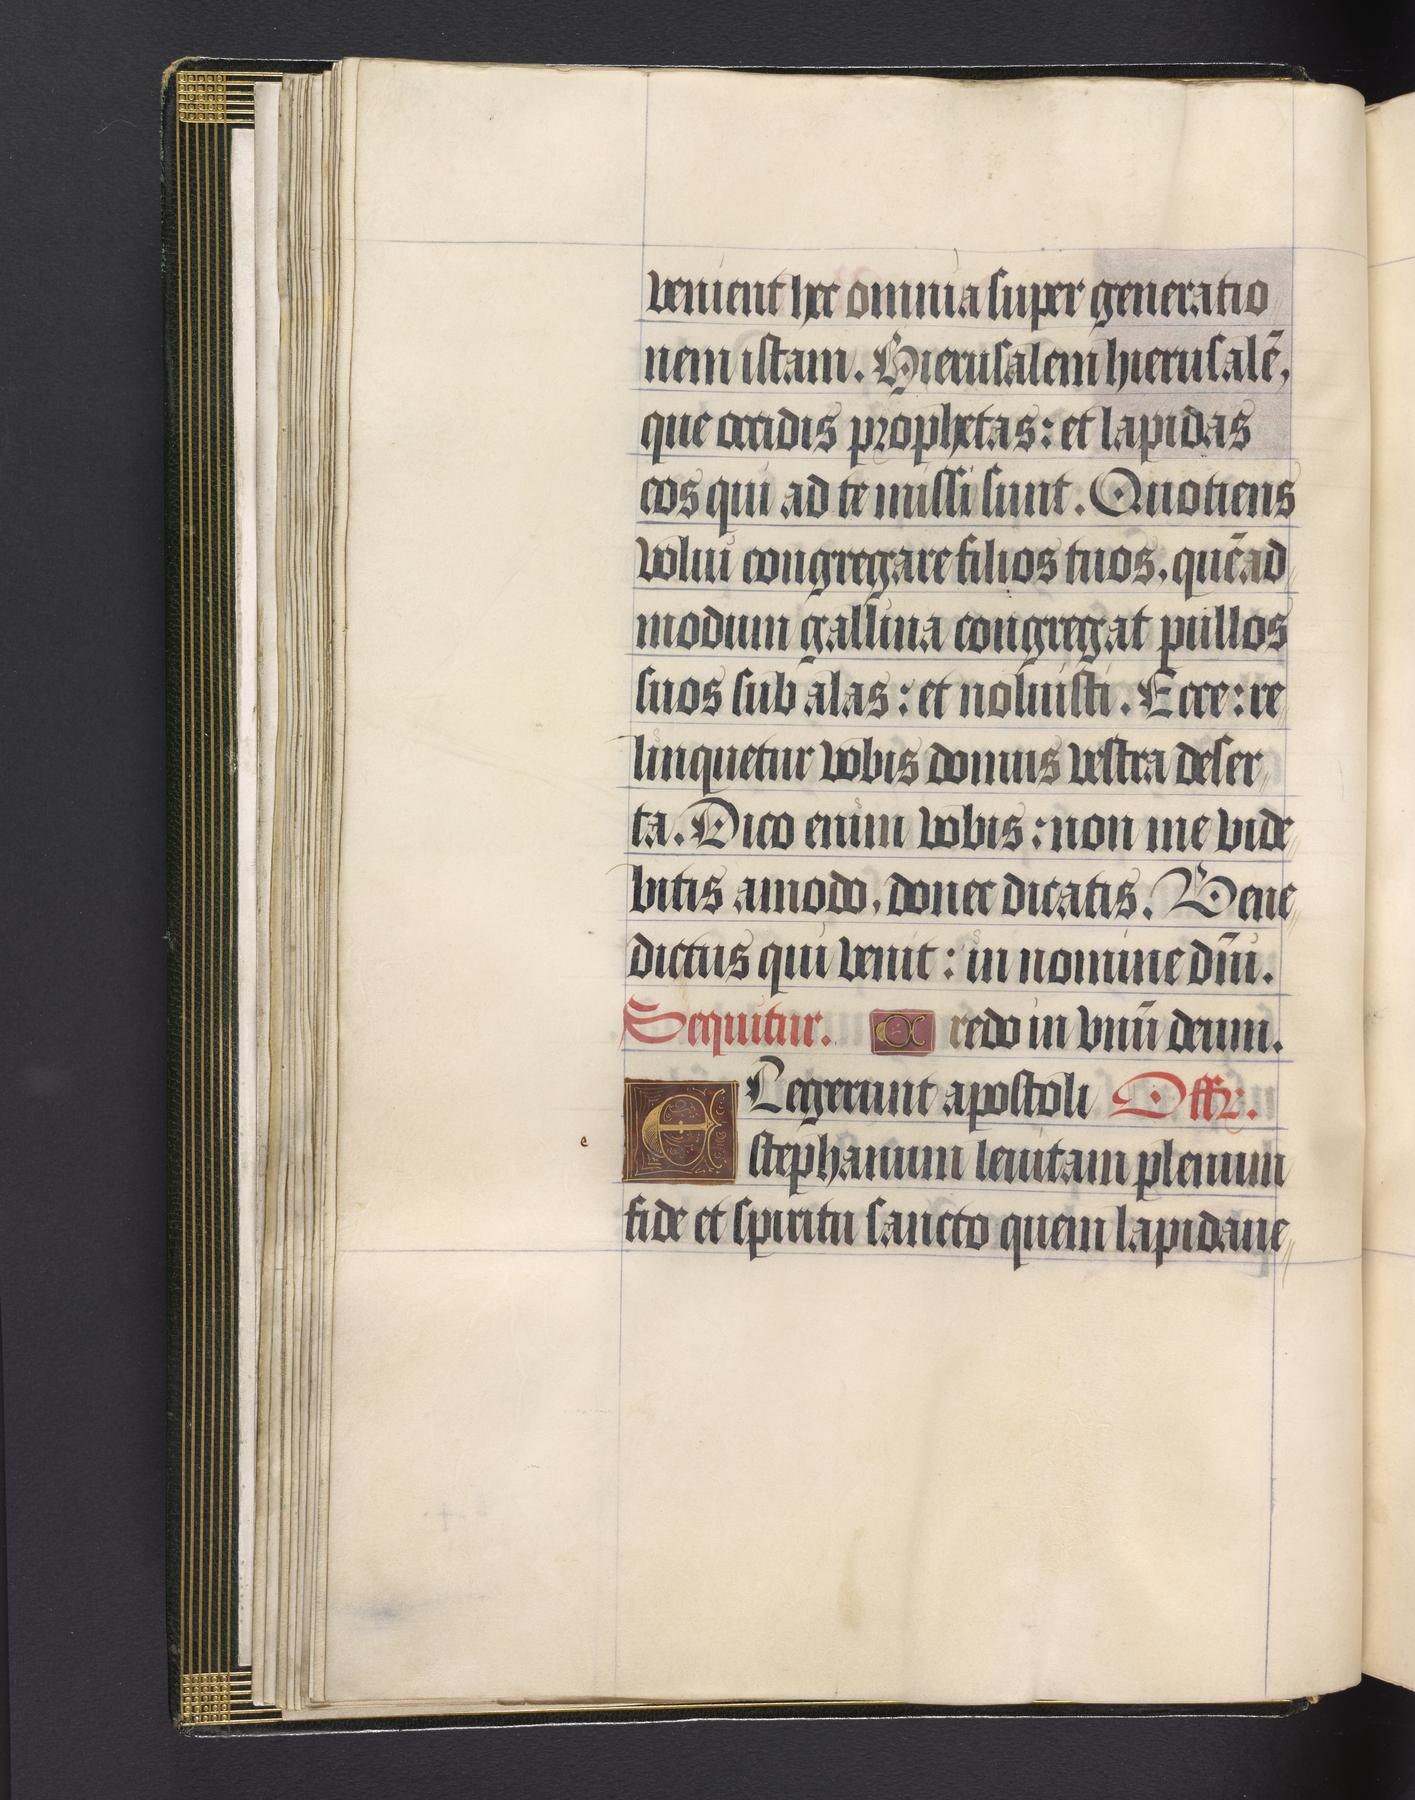 venient hec omnia super generatio
nem istam. Hierusalem hierusalē,
que occidis prophetas: et lapidas
eos qui ad te missi sunt. Quotiens
volui congregare filios tuos, quēad
modum gallina congregat pullos
suos sub alas: et noluisti. Ecce: re
linquetur vobis domus vestra deser
ta. Dico enim vobis: non me vide
bitis amodo, donec dicatis. Bene
dictus qui venit: in nomine dn̄i.
Sequitur. Credo in vnū deum.
ELegerunt apostoli Offr.
e stephanum leuitam plenum
fide et spiritu sancto quem lapidaue